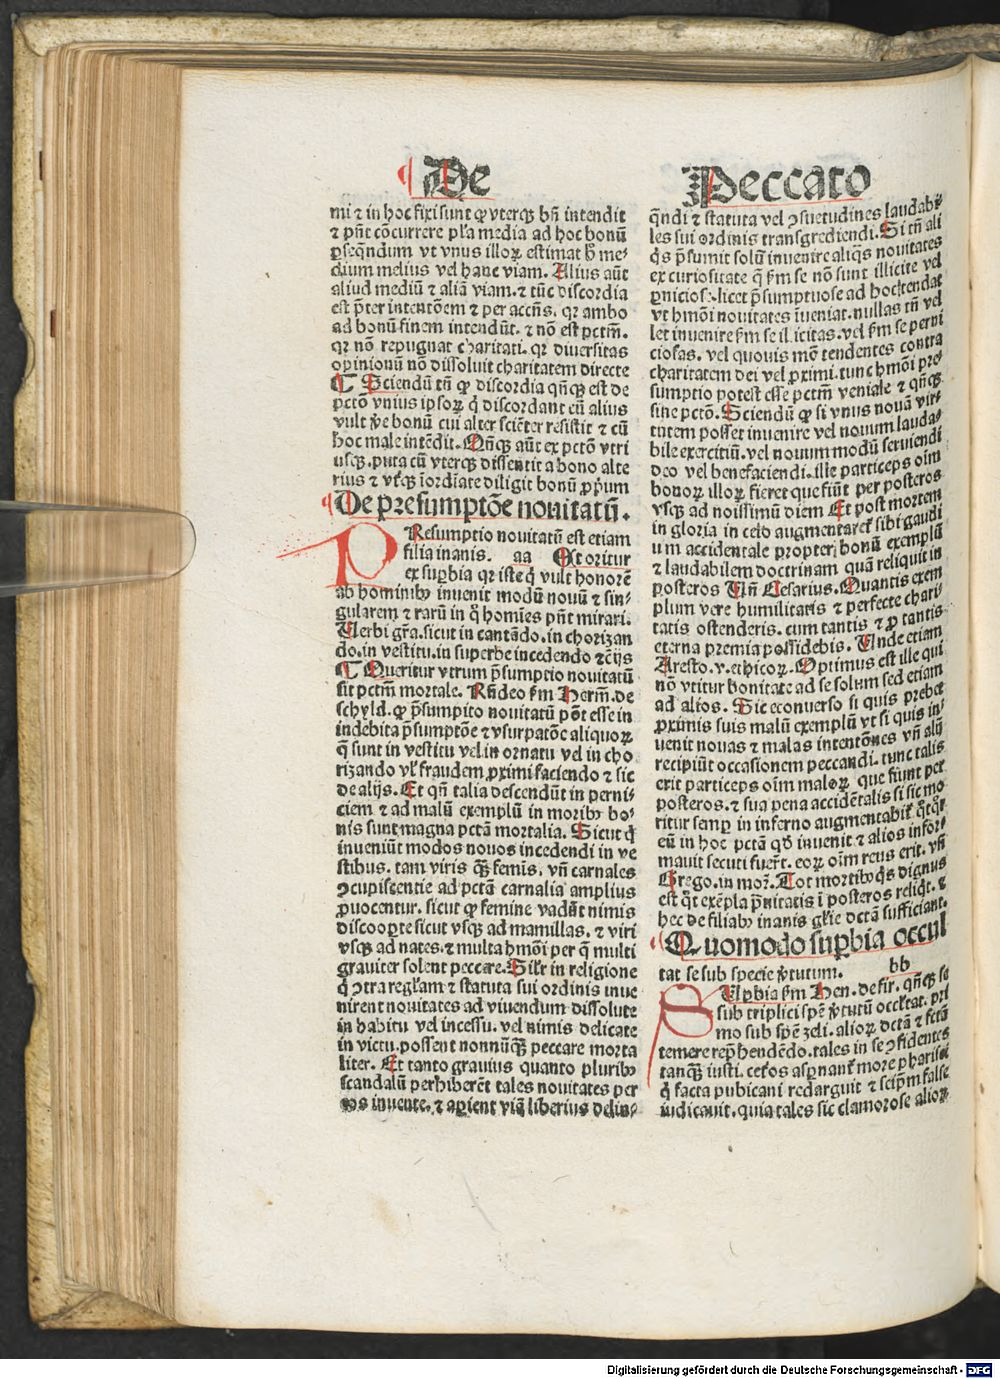 De
mi ⁊ in hoc fixi sunt ꝙ vterqꝫ bñ intendit
⁊ pñt cōcurrere pl'a media ad hoc bonū
ꝓseq̄ndum vt vnus illoꝝ estimat h̄ me-
dium melius vel hanc viam. Alius aūt
aliud mediū ⁊ aliā viam. ⁊ tūc discordia
est p̄ter intentōem ⁊ per accn̄s. qꝛ ambo
ad bonū finem intendūt. ⁊ nō est pctm̄.
qꝛ nō repugnat charitati. qꝛ diuersitas
opinionū nō dissoluit charitatem directe
¶ Sciendū tn̄ ꝙ discordia qn̄qꝫ est de
pctō vnius ipsoꝝ q̇ discordant cū alius
vult v̓e bonū cui alter sciēter resistit ⁊ cū
hoc male intēdit. Qn̄qꝫ aūt ex pctō vtri
usqꝫ. puta cū vterqꝫ dissentit a bono alte
rius ⁊ vt̓qꝫ īordīate diligit bonū ꝓpriū
De presumptōe nouitatū.
PResumptio nouitatū est etiam
filia inanis. aa Et oritur
ex suꝑbia qꝛ iste q̇ vult honorē
ab hominibꝰ inuenit modū nouū ⁊ sin-
gularem ⁊ rarū in q̊ homīes pñt mirari.
Uerbi gr̄a. sicut in cantādo. in chorizan
do. in vestitu. in superbe incedendo ⁊cͥijs
¶ Queritur vtrum p̄sumptio nouitatū
sit pctm̄ mortale. Rn̄deo ẜm Herm̄. de
schyld. ꝙ p̄sumpito nouitatū pōt esse in
indebita p̄sumptōe ⁊ vsurpatōe aliquoꝝ
q̄ sunt in vestitu vel in ornatu vel in cho
rizando vl̓ fraudem ꝓximi faciendo ⁊ sic
de alijs. Et qn̄ talia descendūt in perni-
ciem ⁊ ad malū exemplū in moribꝰ bo-
nis sunt magna pctā mortalia. Sicut q̇
inueniūt modos nouos incedendi in ve
stibus. tam viris qꝫ̄ femīs, vn̄ carnales
ꝯcupiscentie ad pctā carnalia amplius
ꝓuocentur. sicut ꝙ femine vadūt nimis
discooꝑte sicut vsqꝫ ad mamillas. ⁊ viri
vsqꝫ ad nates. ⁊ multa hmōi per q̄ multi
grauiter solent peccare. Sil̓r in religione
q̇ ꝯtra regl̓am ⁊ statuta sui ordinis inue
nirent nouitates ad viuendum dissolute
in habitu vel incessu. vel nimis delicate
in victu. possent nonnūqꝫ̄ peccare morta
liter. Et tanto grauius quanto pluribꝰ
scandalū perhiberēt tales nouitates per
eos inuente. ⁊ aꝑient viā liberius delin-
Peccato
q̄ndi ⁊ statuta vel ꝯsuetudines laudabi-
les sui ordinis transgrediendi. Si tn̄ ali
q̇s p̄sumit solū inuenire aliq̄s nouitates
ex curiositate q̄ ẜm se nō sunt illicite vel
ꝑniciose. licet p̄sumptuose ad hoc tendat
vt hmōi nouitates īueniat. nullas tn̄ vel
let inuenire ẜm se illicitas. vel ẜm se perni
ciosas. vel quouis mō tendentes contra
charitatem dei vel ꝓximi. tunc hmōi pre
sumptio potest esse pctm̄ veniale ⁊ qn̄qꝫ
sine pctō. Sciendū ꝙ si vnus nouā vir-
tutem posset inuenire vel nouum lauda-
bile exercitiū. vel nouum modū seruiendi
deo vel benefaciendi. ille particeps oīm
bonoꝝ illoꝝ fieret que fiūt per posteros
vsqꝫ ad nouissimū diem Et post mortem
in gloria in celo augmentaret̓ sibi gaudi
um accidentale propter bonū exemplū
⁊ laudabilem doctrinam quā reliquit in
posteros Un̄ Cesarius. Quantis exem
plum vere humilitatis ⁊ perfecte chari-
tatis ostenderis. cum tantis ⁊ ꝓ tantis
eterna premia possidebis. Unde etiam
Aresto. v. ethicoꝝ. Optimus est ille qui
nō vtitur bonitate ad se solum sed etiam
ad alios. Sic econuerso si quis prebet
ꝓximis suis malū exemplū vt si quis in-
uenit nouas ⁊ malas intentōnes vn̄ alij
recipiūt occasionem peccandi. tunc talis
erit particeps oīm maloꝝ que fiunt per
posteros. ⁊ sua pena accidētalis si sic mo
ritur semꝑ in inferno augmentabit̓ q̊tq̊t
eū in hoc pctā qd̓ inuenit ⁊ alios infor-
mauit secuti fuer̄t. eoꝝ oīm reus erit. vn̄
Grego. in moꝝ. Tot mortibꝰ q̇s dignus
est q̊t exēpla p̄uitatis ī posteros reliq̇t. ⁊
hec de filiabꝰ inanis gl̓ie dctā sufficiant.
Quomodo suꝑbia occul
tat se sub specie v̓tutum. bb
SUꝑbia ẜm Hen. de fir. qn̄qꝫ se
sub triplici spē v̓tutū occl̓tat. pri
mo sub spē zeli. alioꝝ dctā ⁊ fctā
temere rep̄hendēdo. tales in se ꝯfidentes
tanqꝫ̄ iusti. cet̓os aspnant̓ more pharisei
q̇ facta pubicani redarguit ⁊ seip̄m false
iudicauit. quia tales sic clamorose alioꝝ
Digitalisierung gefördert durch die Deutsche Forschungsgemeinschaft - DFG